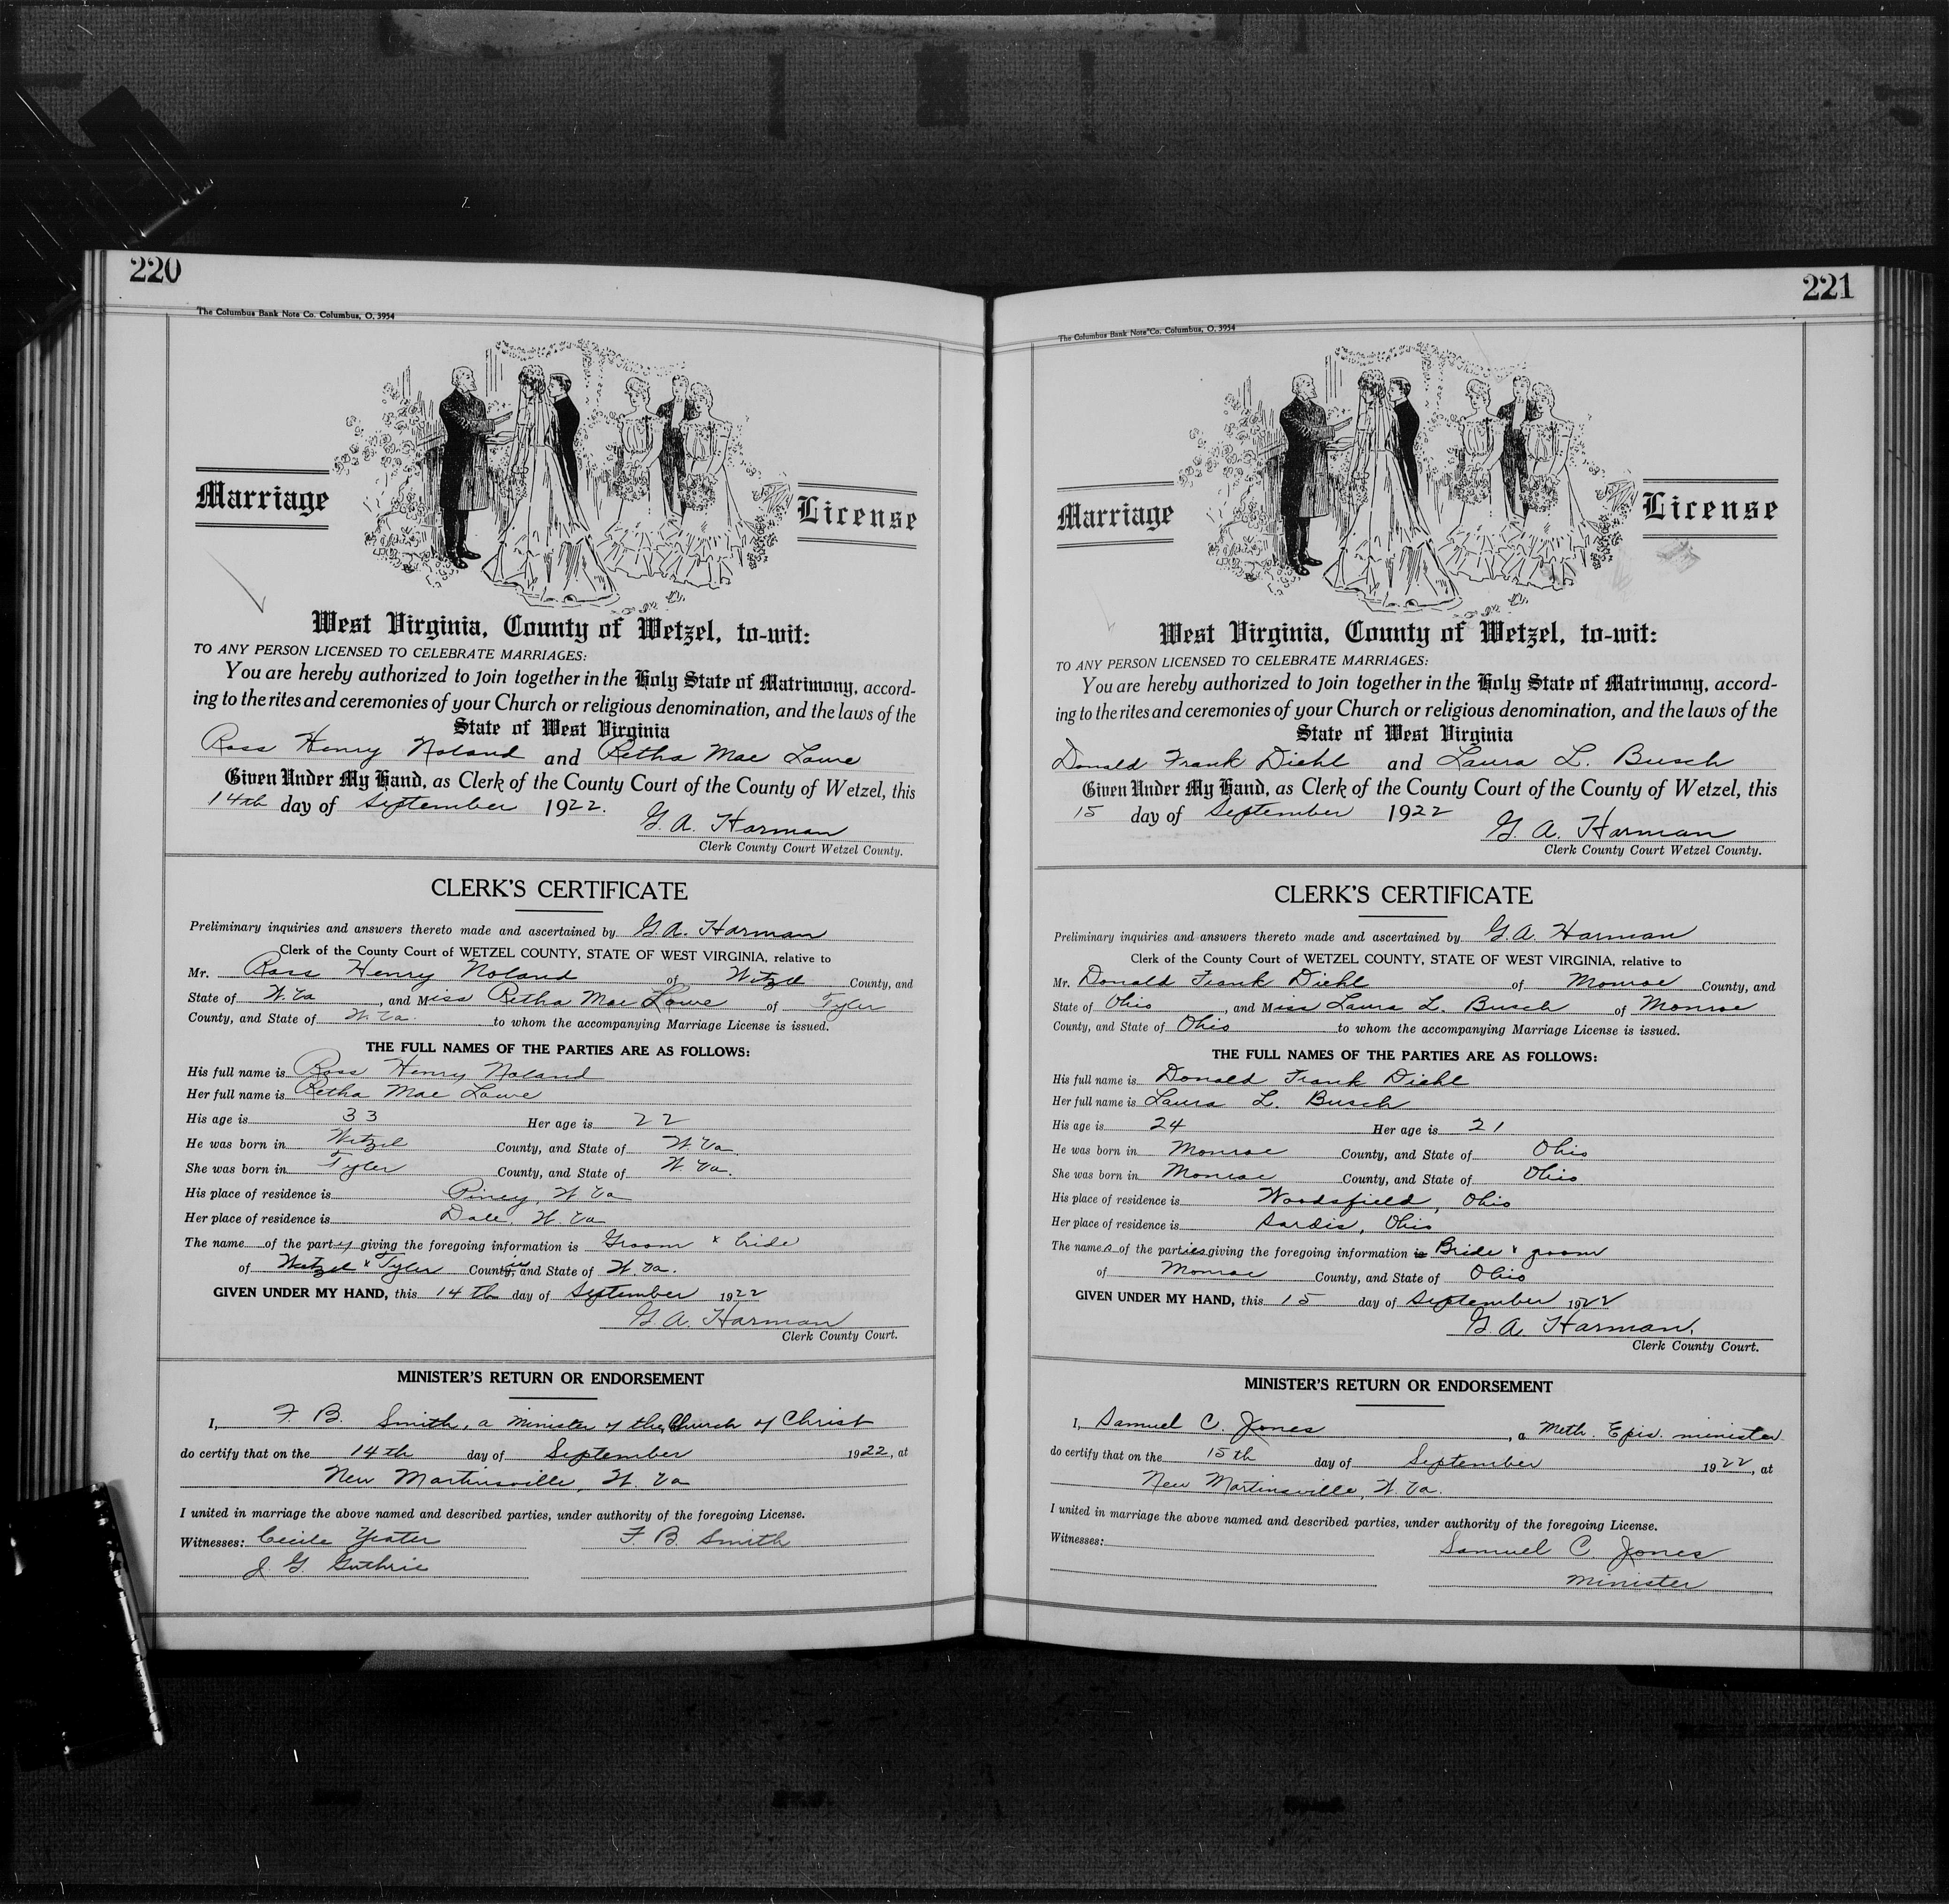 220
The Columbus Bank Note Co. Columbus, O. 3954
Marriage License
West Virginia, County of Wetzel, to-wit:
TO ANY PERSON LICENSED TO CELEBRATE MARRIAGES:
You are hereby authorized to join together in the Holy State of Matrimony, accord-
ing to the rites and ceremonies of your Church or religious denomination, and the laws of the
State of West Virginia
Ross Henry Noland and Retha Mae Lowe
Given Under My Hand, as Clerk of the County Court of the County of Wetzel, this
14th day of September 1922.
G. A. Harman
Clerk County Court Wetzel County.
CLERK'S CERTIFICATE
Preliminary inquiries and answers thereto made and ascertained by G. A. Harman
Clerk of the County Court of WETZEL COUNTY, STATE OF WEST VIRGINIA, relative to
Mr. Ross Henry Noland of Wetzel County, and
State of W. Va , and Miss Retha Mae Lowe of Tyler
County, and State of W. Va. to whom the accompanying Marriage License is issued.
THE FULL NAMES OF THE PARTIES ARE AS FOLLOWS:
His full name is Ross Henry Noland
Her full name is Retha Mae Lowe
His age is 33 Her age is 22
He was born in Wetzel County, and State of W. Va
She was born in Tyler County, and State of W. Va.
His place of residence is Piney, W. Va
Her place of residence is Dale, W. Va
The name of the party giving the foregoing information is Groom & bride
of Wetzel & Tyler County, and State of W. Va.
GIVEN UNDER MY HAND, this 14th day of September 1922
G. A. Harman
Clerk County Court.
MINISTER'S RETURN OR ENDORSEMENT
I, F. B. Smith, a minister of the Church of Christ
do certify that on the 14th day of September 1922, at
New Martinsville, W. Va
I united in marriage the above named and described parties, under authority of the foregoing License.
Witnesses: Cecile Yeater F. B. Smith
J. G. Guthrie
221
The Columbus Bank Note Co. Columbus, O. 3954
Marriage License
West Virginia, County of Wetzel, to-wit:
TO ANY PERSON LICENSED TO CELEBRATE MARRIAGES:
You are hereby authorized to join together in the Holy State of Matrimony, accord-
ing to the rites and ceremonies of your Church or religious denomination, and the laws of the
State of West Virginia
Donald Frank Diehl and Laura L. Busch
Given Under My Hand, as Clerk of the County Court of the County of Wetzel, this
15 day of September 1922
G. A. Harman
Clerk County Court Wetzel County.
CLERK'S CERTIFICATE
Preliminary inquiries and answers thereto made and ascertained by G. A. Harman
Clerk of the County Court of WETZEL COUNTY, STATE OF WEST VIRGINIA, relative to
Mr. Donald Frank Diehl of Monroe County, and
State of Ohio , and Miss Laura L. Busch of Monroe
County, and State of Ohio to whom the accompanying Marriage License is issued.
THE FULL NAMES OF THE PARTIES ARE AS FOLLOWS:
His full name is Donald Frank Diehl
Her full name is Laura L. Busch
His age is 24 Her age is 21
He was born in Monroe County, and State of Ohio
She was born in Monroe County, and State of Ohio
His place of residence is Woodsfield, Ohio
Her place of residence is Sardis, Ohio
The names of the parties giving the foregoing information is Bride & groom
of Monroe County, and State of Ohio
GIVEN UNDER MY HAND, this 15 day of September 1922
G. A. Harman.
Clerk County Court.
MINISTER'S RETURN OR ENDORSEMENT
I, Samuel C. Jones , a Meth. Epis. minister
do certify that on the 15th day of September 1922, at
New Martinsville, W. Va.
I united in marriage the above named and described parties, under authority of the foregoing License.
Witnesses: Samuel C. Jones
minister